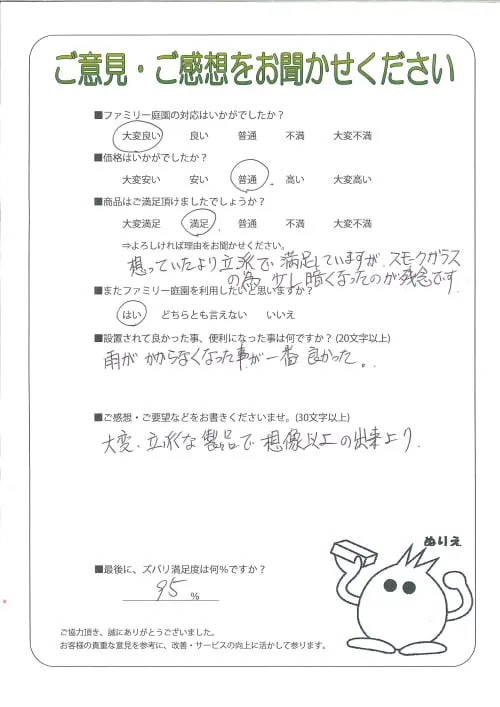 ご意見・ご感想をお聞かせください
■ファミリー庭園の対応はいかがでしたか？
大変良い 良い 普通 不満 大変不満
■価格はいかがでしたか？
大変安い 安い 普通 高い 大変高い
■商品はご満足頂けましたでしょうか？
大変満足 満足 普通 不満 大変不満
⇒よろしければ理由をお聞かせください。
想っていたより立派で満足していますが、スモークガラス
の為、少し暗くなったのが残念です
■またファミリー庭園を利用したいと思いますか？
はい どちらとも言えない いいえ
■設置されて良かった事、便利になった事は何ですか？(20文字以上)
雨がかからなくなった事が一番良かった。
■ご感想・ご要望などをお書きくださいませ。(30文字以上)
大変、立派な製品で想像以上の出来より
ぬりえ
■最後に、ズバリ満足度は何％ですか？
95 %
ご協力頂き、誠にありがとうございました。
お客様の貴重な意見を参考に、改善・サービスの向上に活かして参ります。